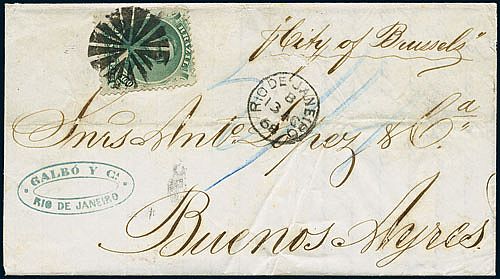 "City of Brussels"
RIO DE JANEIRO
8
13
68
Snrs Anto. López & Ca.
GALBÓ Y Ca.
RIO DE JANEIRO
Buenos Ayres.